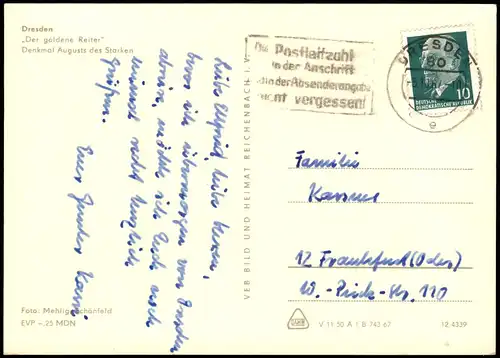 Dresden
„Der goldene Reiter"
Denkmal Augusts des Starken
Die Postleitzahl
in der Anschrift
in der Absenderangabe
nicht vergessen!
DRESDEN
80
e
10
DEUTSCHE
DEMOKRATISCHE REPUBLIK
liebe
bevor ich übermorgen von Dresden
möchte ich Euch noch
einmal recht herzlich
grüßen.
Euer
VEB BILD UND HEIMAT REICHENBACH I. V.
Familie
12 Frankfurt (Oder)
W.-Pieck-Str. 110
Foto: Mehlig, Schönfeld
EVP –,25 MDN
V 11 50 A 1 B 743 67
12 4339